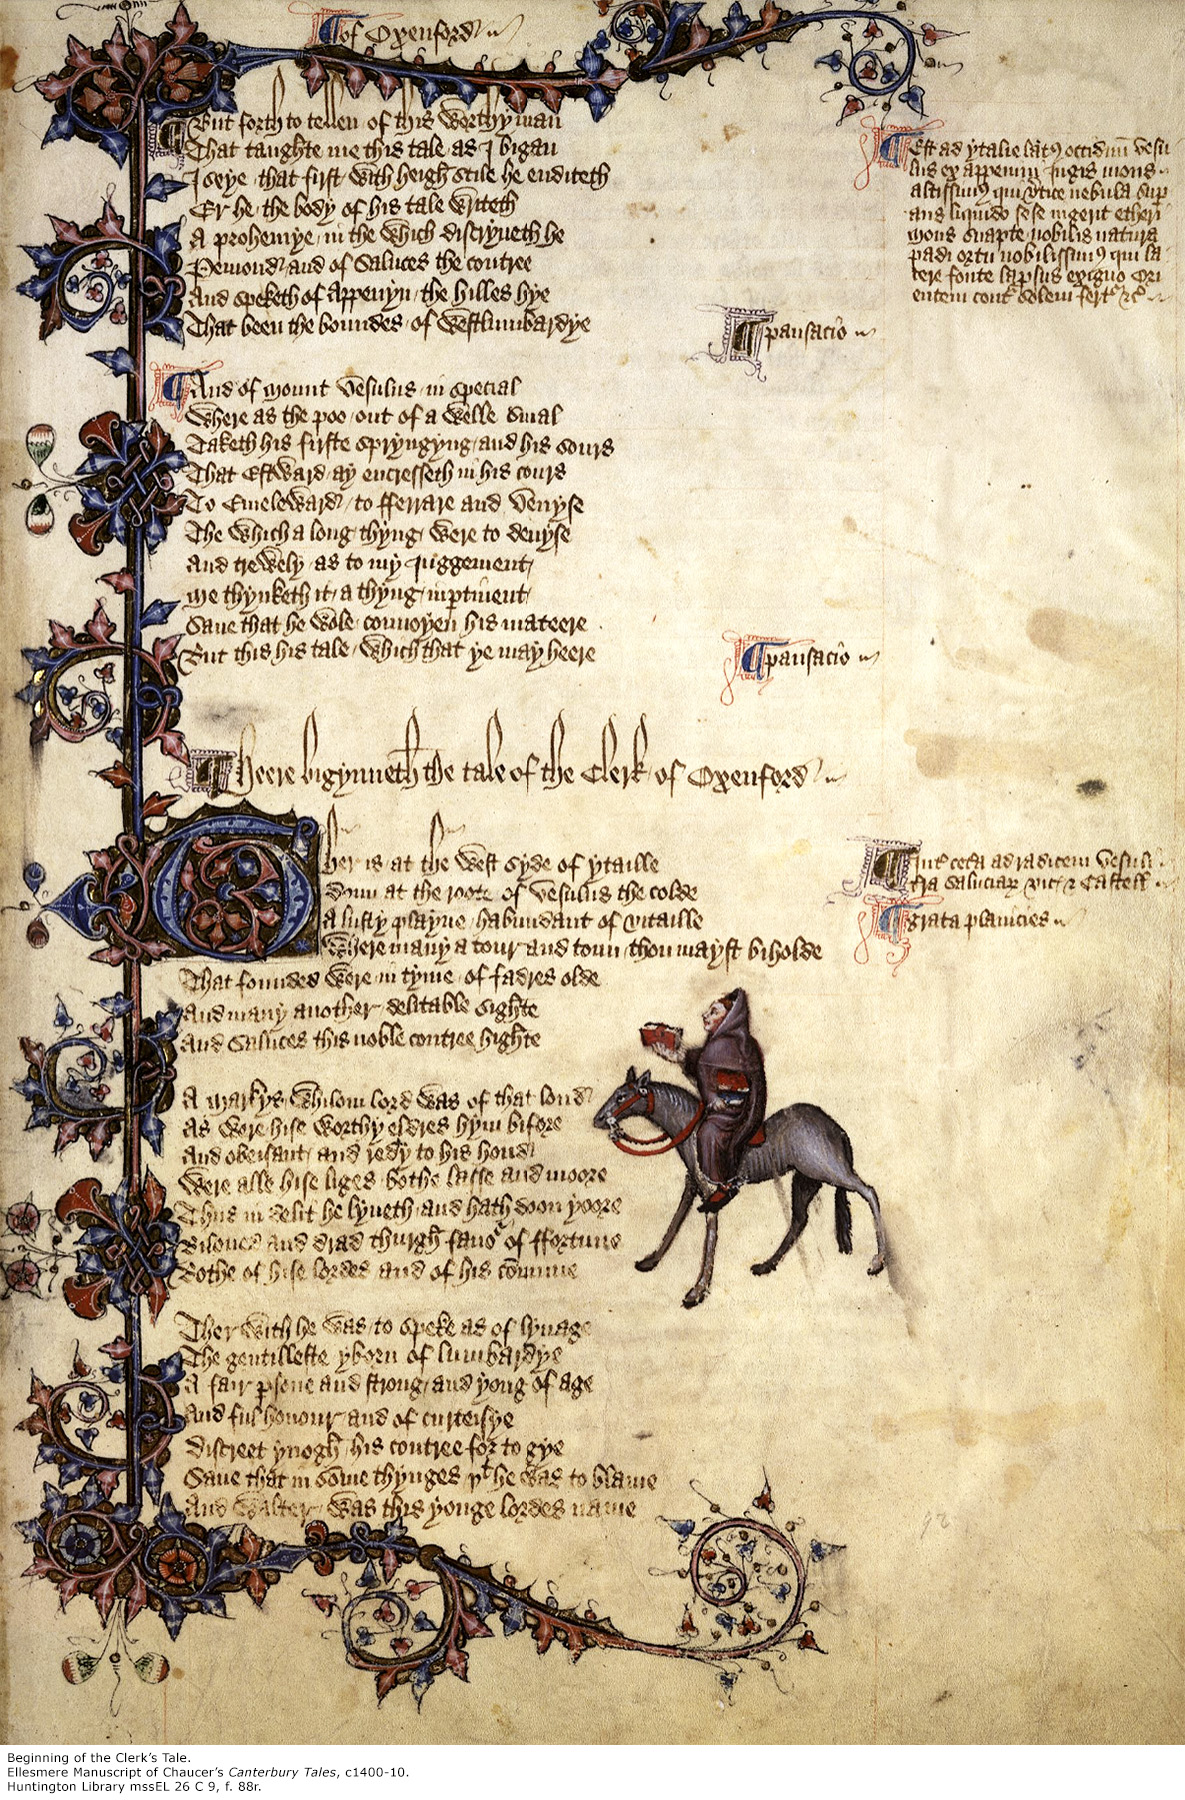 of Oxenford
But forth to tellen of this worthy man
That taughte me this tale as I bigan
I seye that first with heigh stile he enditeth
Er he the body of his tale writeth
A prohemye in the which discryueth he
Pemond and of Saluces the contree
And speketh of Appenyn the hilles hye
That been the boundes of Westlumbardye
And of Mount Vesulus in special
Where as the Poo out of a welle smal
Taketh his firste spryngyng and his sours
That Estward ay encresseth in his cours
To Emeleward to fferrare and Venyse
The which a long thyng were to deuyse
And trewely as to my Iuggement
Me thynketh it a thyng inptinent
Saue that he wole conuoyen his mateere
But this his tale which that ye may heere
Est ad ytalie latus occiduum vesu
lus ex appenini Iugis mons
altissimus qui vertice nebula sup
ans liquido sese ingerit etheri
mons suapte nobilis natura
padi ortu nobilissimus qui la
tere fonte lapsus exiguo ori
entem contra solem fertur &c
pausacio
pausacio
Heere bigynneth the tale of the Clerk of Oxenford
Ther is at the West syde of ytaille
Doun at the roote of Vesulus the colde
A lusty playne habundant of vitaille
Where many a tour and toun thou mayst biholde
That founded were in tyme of fadres olde
And many another delitable sighte
And Saluces this noble contree highte
Inter cetera ad radicem Vesuli
terra Saluciarum vicis & Castellis
grata planicies
A Markys whilom lord was of that lond
As were hise worthy eldres hym bifore
And obeisant and redy to his hond
Were alle hise liges bothe lasse and moore
Thus in delit he lyueth and hath doon yoore
Biloued and drad thurgh fauour of ffortune
Bothe of hise lordes and of his commune
Ther with he was to speke as of lynage
The gentilleste yborn of lumbardye
A fair psone and strong and yong of age
And ful honour and of curteisye
Discreet ynogh his contree for to gye
Saue that in somme thynges þt he was to blame
And Walter was this yonge lordes name
92
Beginning of the Clerk’s Tale.
Ellesmere Manuscript of Chaucer’s Canterbury Tales, c1400-10.
Huntington Library mssEL 26 C 9, f. 88r.